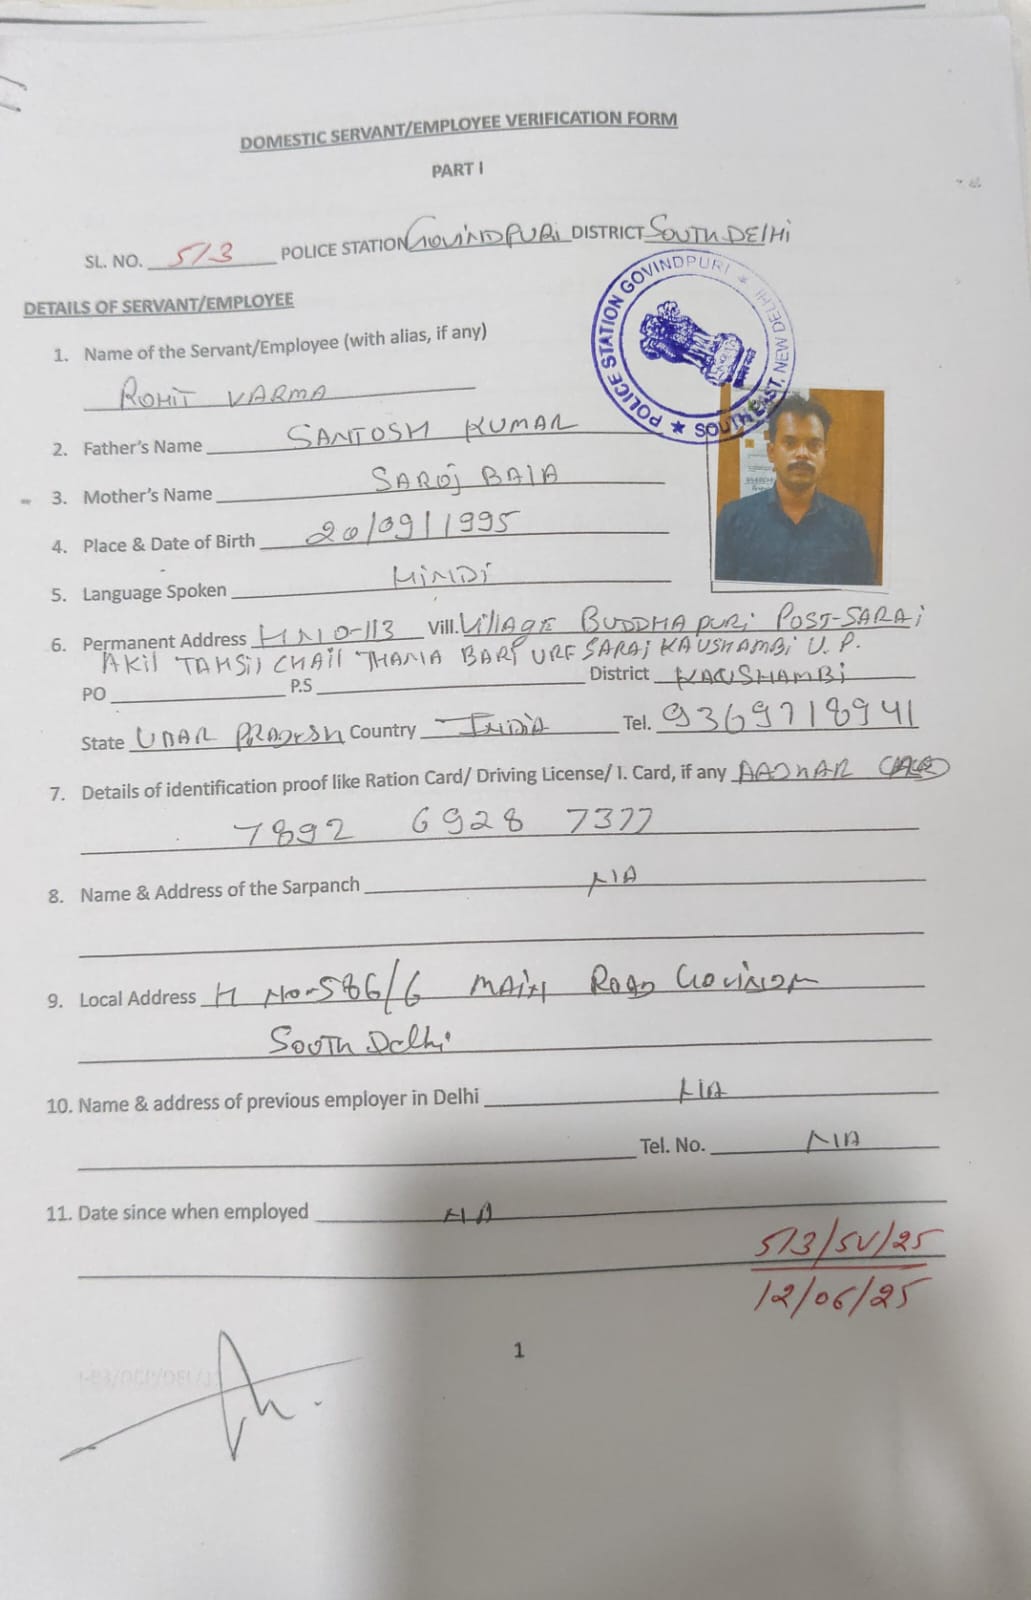 DOMESTIC SERVANT/EMPLOYEE VERIFICATION FORM
PART I
SL. NO. 513 POLICE STATION GOVINDPURi DISTRICT SOUTH DElHi
POLICE STATION GOVINDPURI ★ SOUTH EAST, NEW DELHI ★
DETAILS OF SERVANT/EMPLOYEE
1. Name of the Servant/Employee (with alias, if any)
ROHIT VARMA
2. Father's Name SANTOSH KUMAR
3. Mother's Name SAROj BAlA
4. Place & Date of Birth 20/09/1995
5. Language Spoken HiNDi
6. Permanent Address H NO-113 Vill. VillAGE BUDDHA PURi POST-SARAi
AKil TAHSil CHAil THANA BARiPURF SARAi KAUSHAMBi U.P.
PO P.S District KAUSHAMBi
State UTTAR PRADESH Country INDIA Tel. 9369718941
7. Details of identification proof like Ration Card/ Driving License/ I. Card, if any AADHAR CARD
7892 6928 7377
8. Name & Address of the Sarpanch N/A
9. Local Address H NO-586/6 MAIN ROAD
SOUTH Delhi
10. Name & address of previous employer in Delhi N/A
Tel. No. N/A
11. Date since when employed N/A
513/SV/25
12/06/25
1